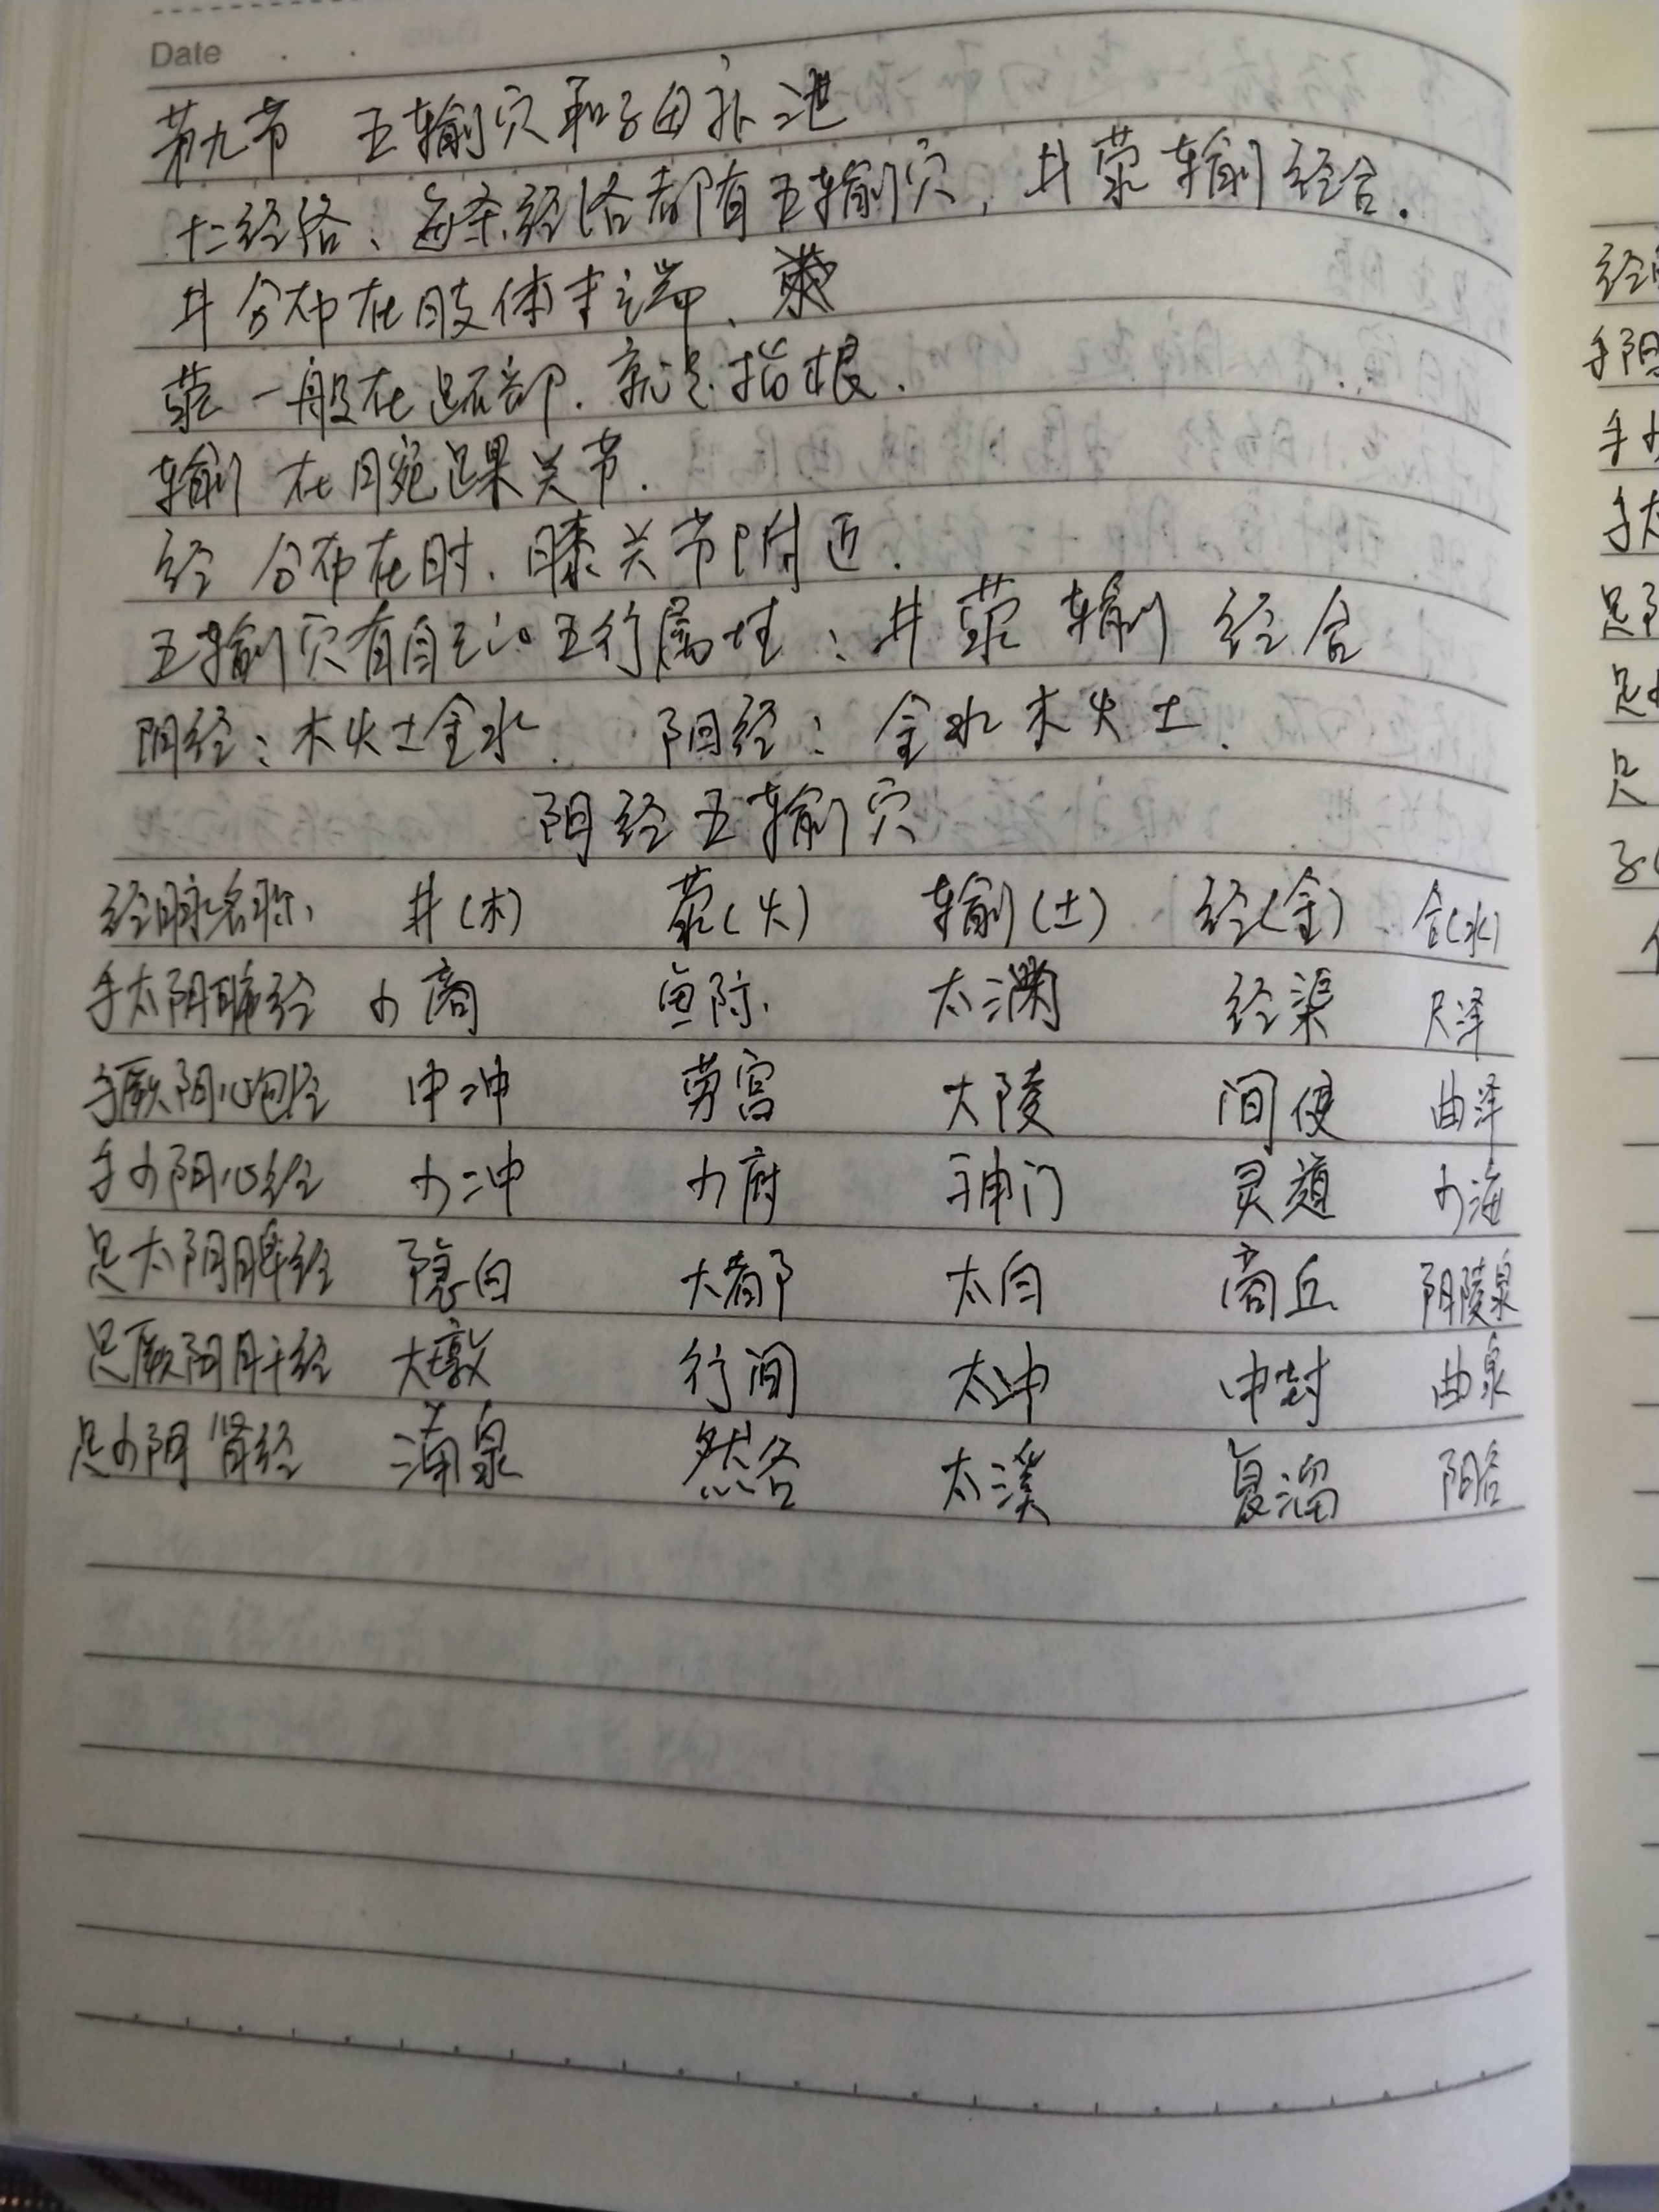 Date
第九节 五输穴和子母补泄
十二经络、每条经络都有五输穴，井荥输经合.
井分布在肢体末端、
荥一般在跖部.就是指根.
输 在腕踝关节.
经 分布在肘.膝关节附近.
五输穴有自己的五行属性：井荥输 经合
阴经：木火土金水. 阳经：金水木火土.
阴经五输穴
经脉名称 井(木) 荥(火) 输(土) 经(金) 合(水)
手太阴肺经 少商 鱼际 太渊 经渠 尺泽
手厥阴心包经 中冲 劳宫 大陵 间使 曲泽
手少阴心经 少冲 少府 神门 灵道 少海
足太阴脾经 隐白 大都 太白 商丘 阴陵泉
足厥阴肝经 大敦 行间 太冲 中封 曲泉
足少阴肾经 涌泉 然谷 太溪 复溜 阴谷
经
手阳
手少
手太
足
足
足
子